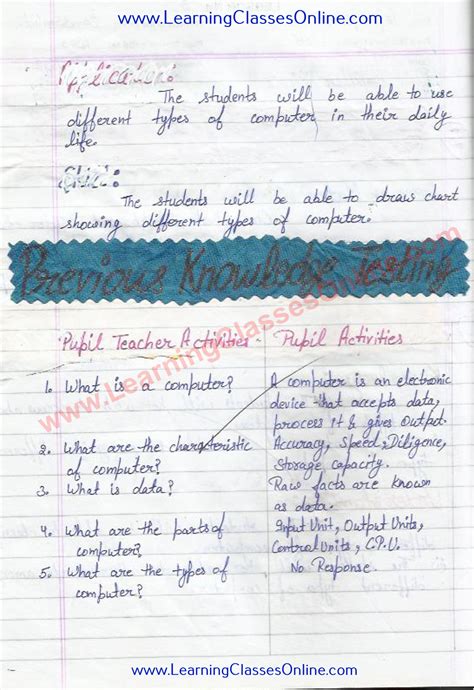 www.LearningClassesOnline.com
Application:
The students will be able to use
different types of computer in their daily
life.
Skill:
The students will be able to draw chart
showing different types of computer.
Previous Knowledge Testing
Pupil Teacher Activities
Pupil Activities
1. What is a computer?
A computer is an electronic
device that accepts data,
process it & gives output.
2. What are the characteristic
of computer?
Accuracy, Speed, Diligence,
Storage capacity.
3. What is data?
Raw facts are known
as data.
4. What are the parts of
computer?
Input Unit, Output Units,
Control Units, C.P.U.
5. What are the types of
computer?
No Response.
www.LearningClassesOnline.com
www.LearningClassesOnline.com